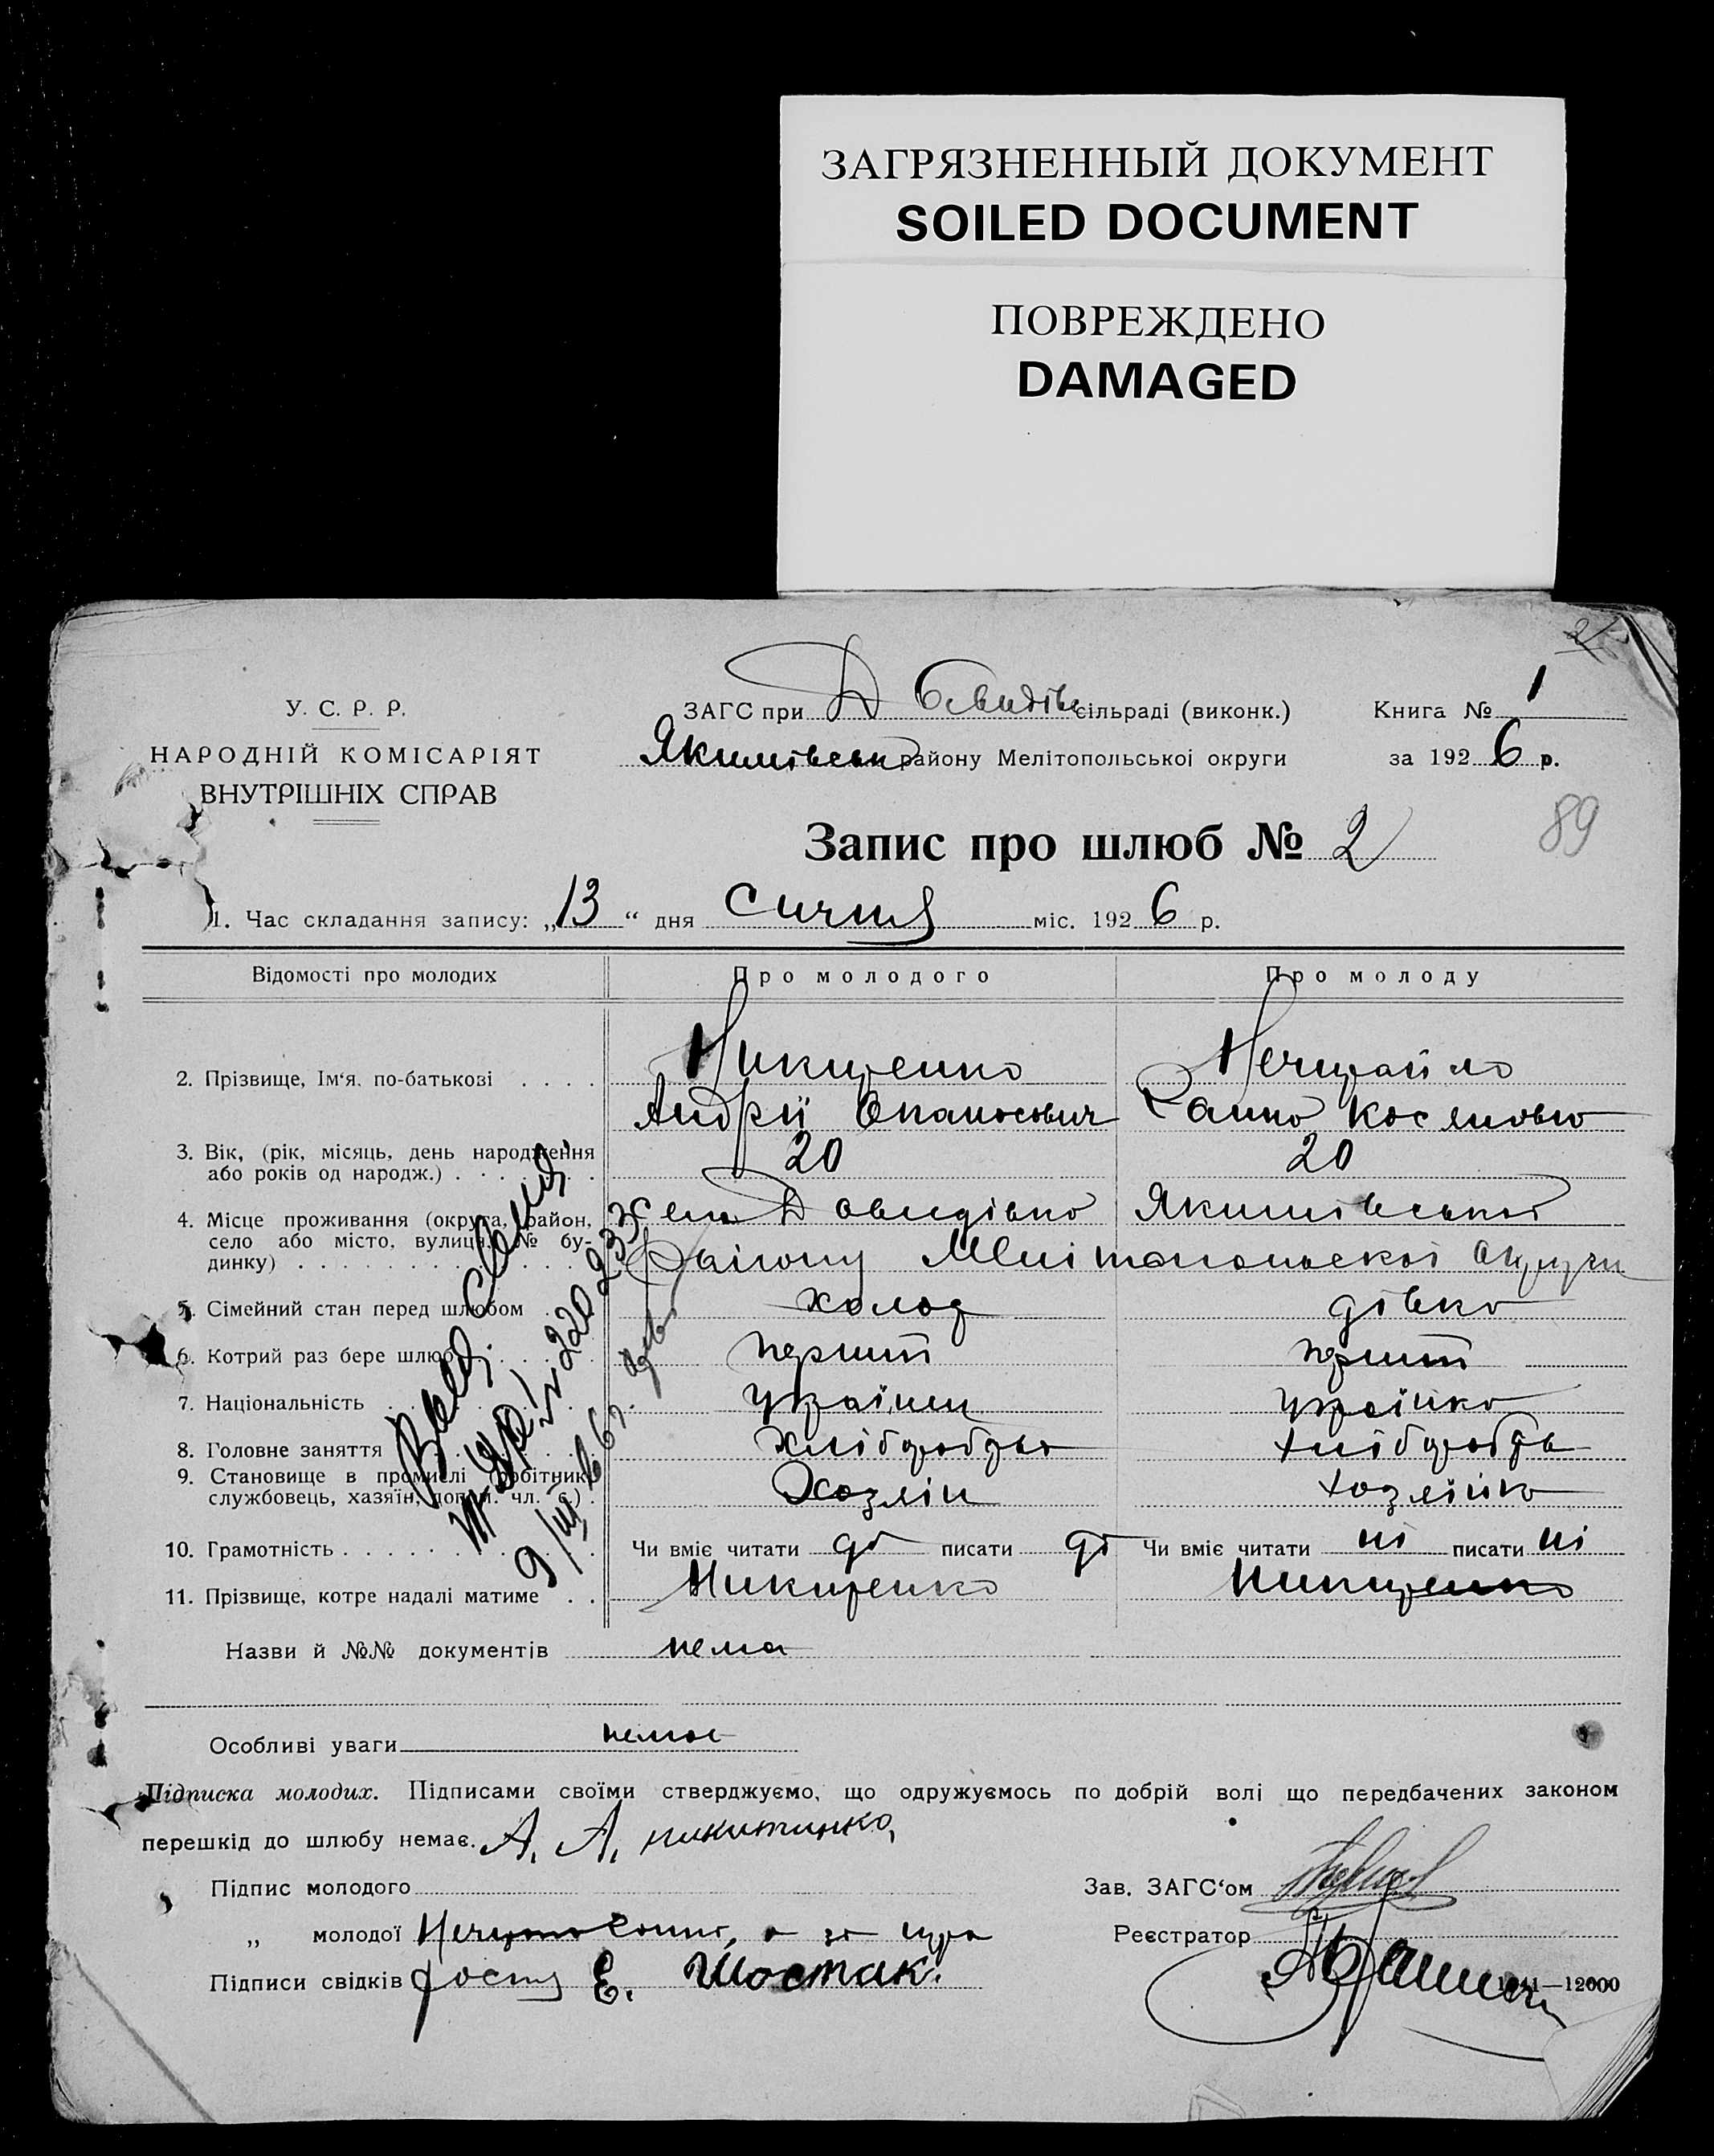 ЗАГРЯЗНЕННЫЙ ДОКУМЕНТ
SOILED DOCUMENT
ПОВРЕЖДЕНО
DAMAGED
У. С. Р. Р.
НАРОДНІЙ КОМІСАРІЯТ
ВНУТРІШНІХ СПРАВ
ЗАГС при сільраді (виконк.) Книга № 1
Якимівськ району Мелітопольської округи за 1926 р.
Запис про шлюб № 2
89
1. Час складання запису: „13“ дня Січня міс. 1926 р.
Відомості про молодих Про молодого Про молоду
2. Прізвище, Ім‘я, по-батькові
Никитенко
Андрій Опанасович
3. Вік, (рік, місяць, день народження або років од народж.) 20 20
4. Місце проживання (округа, район, село або місто, вулиця, № будинку)
Давидівка Якимівської
району Мелітопольської округи
5. Сімейний стан перед шлюбом холод дівка
6. Котрий раз бере шлюб перший перший
7. Національність Українец Українка
8. Головне заняття хлібороб
9. Становище в промислі (робітник, службовець, хазяїн, допом. чл. с.) Хозяїн хозяйка
10. Грамотність Чи вміє читати да писати да Чи вміє читати ні писати ні
11. Прізвище, котре надалі матиме Никитенко Никитенко
Назви й №№ документів нема
Особливі уваги нема
Підписка молодих. Підписами своїми стверджуємо, що одружуємось по добрій волі що передбачених законом
перешкід до шлюбу немає. А. А. никитинко
Підпис молодого Зав. ЗАГС‘ом
„ молодої Реєстратор
Підписи свідків Е. Шостак 12000